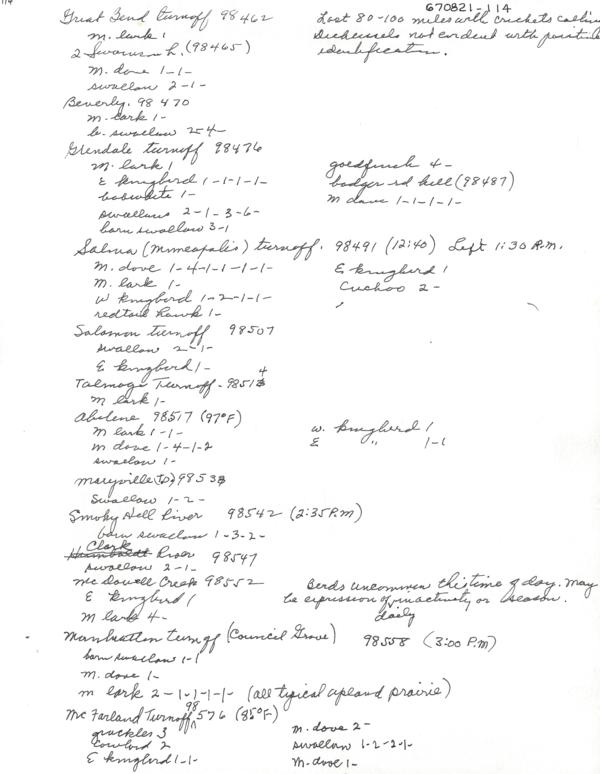 114
670821-114
Great Bend turnoff 98462
m. lark 1
2 Swainson h. (98465)
m. dove 1-1-
swallow 2-1-
Last 80-100 miles with crickets calling
Dickcissels not evident with positive
identification.
Beverly. 98470
m. lark 1-
b. swallow 2-4-
Glendale turnoff 98476
m. lark 1
E kingbird 1-1-1-1-
bobwhite 1-
swallows 2-1-3-6-
barn swallow 3-1
goldfinch 4-
badger rd kill (98487)
m dove 1-1-1-1-
Salina (Minneapolis) turnoff. 98491 (12:40) Left 1:30 P.M.
m. dove 1-4-1-1-1-1-
m. lark 1-
w kingbird 1-2-1-1-
redtail hawk 1-
E kingbird 1
Cuckoo 2-
Solomon turnoff 98507
swallow 2-1-
E kingbird 1-
Talmage Turnoff - 98514
m lark 1-
Abilene 98517 (97°F)
m lark 1-1-
m dove 1-4-1-2
swallow 1-
w. kingbird 1
E " 1-1
Marysville 9853
Swallow 1-2-
Smoky Hill River 98542 (2:35 P.M)
barn swallow 1-3-2-
Clark
Humboldt River 98547
swallow 2-1-
McDowell Creek 98552
E kingbird 1
m lark 4-
Birds uncommon this time of day. May
be expression of inactivity or season.
daily
Manhattan turnoff (Council Grove) 98558 (3:00 P.M)
barn swallow 1-1
m. dove 1-
m lark 2-1-1-1-1- (all typical upland prairie)
McFarland Turnoff 98576 (85°F)
grackles 3
Cowbird 2
E kingbird 1-1-
m. dove 2-
swallow 1-2-2-1-
m. dove 1-